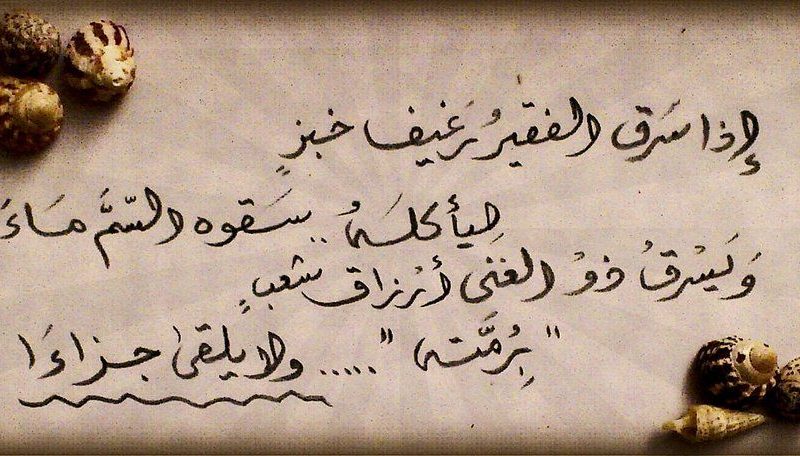 إذا سَرق الفقيرُ رَغيف خبزٍ
ليأكلَهُ .. سَقوه السّمَّ مَاءَ
وَيَسْرقُ ذوْ الغَنَى أرْزاق شعبٍ
"بِرُمَّته" ..... ولا يلقى جزاءَا